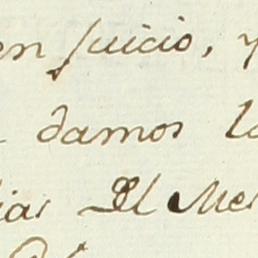 en juicio, y
damos la
ias El Mes